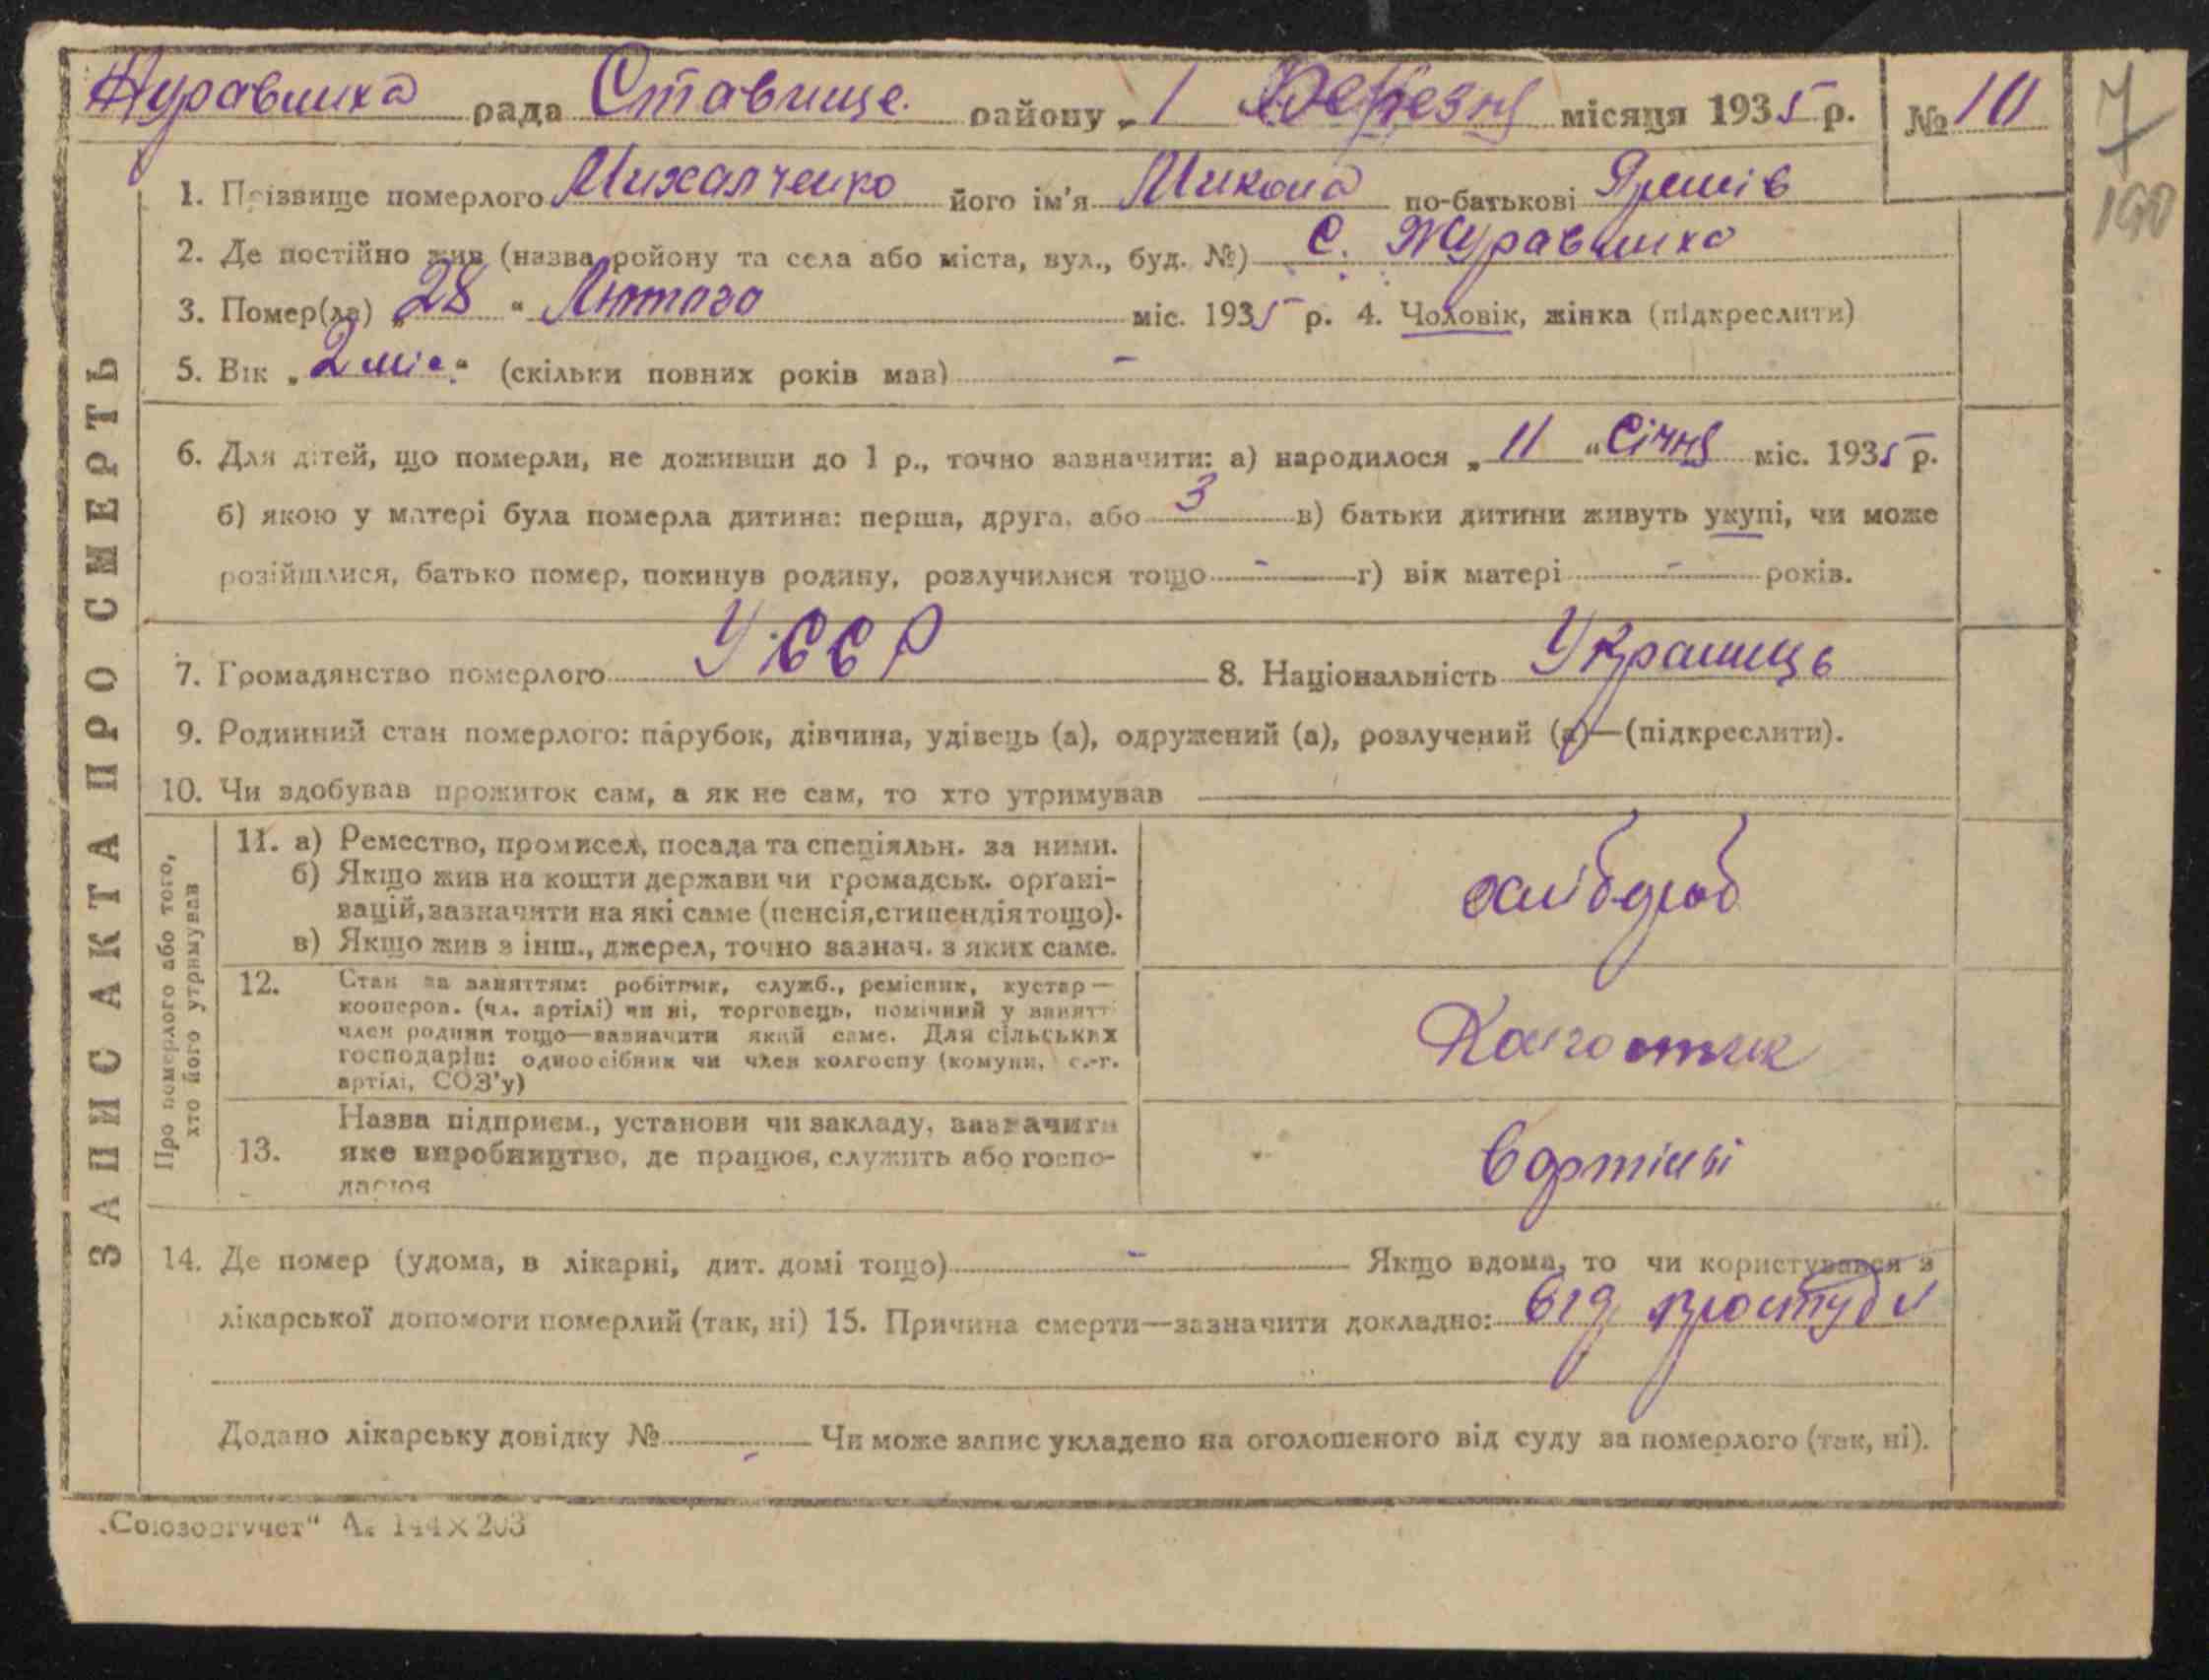 Журавлиха рада Ставище району „1 Березня місяця 1935 р. № 10
7
190
1. Прізвище померлого Михалченко його ім'я Микола по-батькові Ярмів
2. Де постійно жив (назва ройону та села або міста, вул., буд. №) С. Журавлиха
3. Помер(ла) „28 “ Лютого міс. 1935 р. 4. Чоловік, жінка (підкреслити)
5. Вік „2 міс.“ (скільки повних років мав) –
6. Для дітей, що померли, не доживши до 1 р., точно зазначити: а) народилося „11 “ Січня міс. 1935 р.
б) якою у матері була померла дитина: перша, друга, або 3 в) батьки дитини живуть укупі, чи може
розійшлися, батько помер, покинув родину, розлучилися тощо – г) вік матері – років.
7. Громадянство померлого УССР 8. Національність Украинць
9. Родинний стан померлого: парубок, дівчина, удівець (а), одружений (а), розлучений (а)—(підкреслити).
10. Чи здобував прожиток сам, а як не сам, то хто утримував
ЗАПИС АКТА ПРО СМЕРТЬ
Про померлого або того,
хто його утримував
11. а) Ремество, промисел, посада та спеціяльн. за ними.
б) Якщо жив на кошти держави чи громадськ. орґані-
зацій, зазначити на які саме (пенсія, стипендія тощо).
в) Якщо жив з інш., джерел, точно зазнач. з яких саме.
хлібороб
12. Стан за заняттям: робітник, служб., ремісник, кустар—
кооперов. (чл. артілі) чи ні, торговець, помічний у занятті
член родини тощо—зазначити який саме. Для сільських
господарів: одноосібник чи член колгоспу (комуни, с.-г.
артілі, СОЗ'у)
Колгостник
13. Назва підприєм., установи чи закладу, зазначити
яке виробництво, де працює, служить або госпо-
дарює
в артілі
14. Де помер (удома, в лікарні, дит. домі тощо) – Якщо вдома, то чи користувався з
лікарської допомоги померлий (так, ні) 15. Причина смерти—зазначити докладно: від простуди
Додано лікарську довідку № – Чи може запис укладено на оголошеного від суду за померлого (так, ні).
„Союзоргучет“ А. 144×203